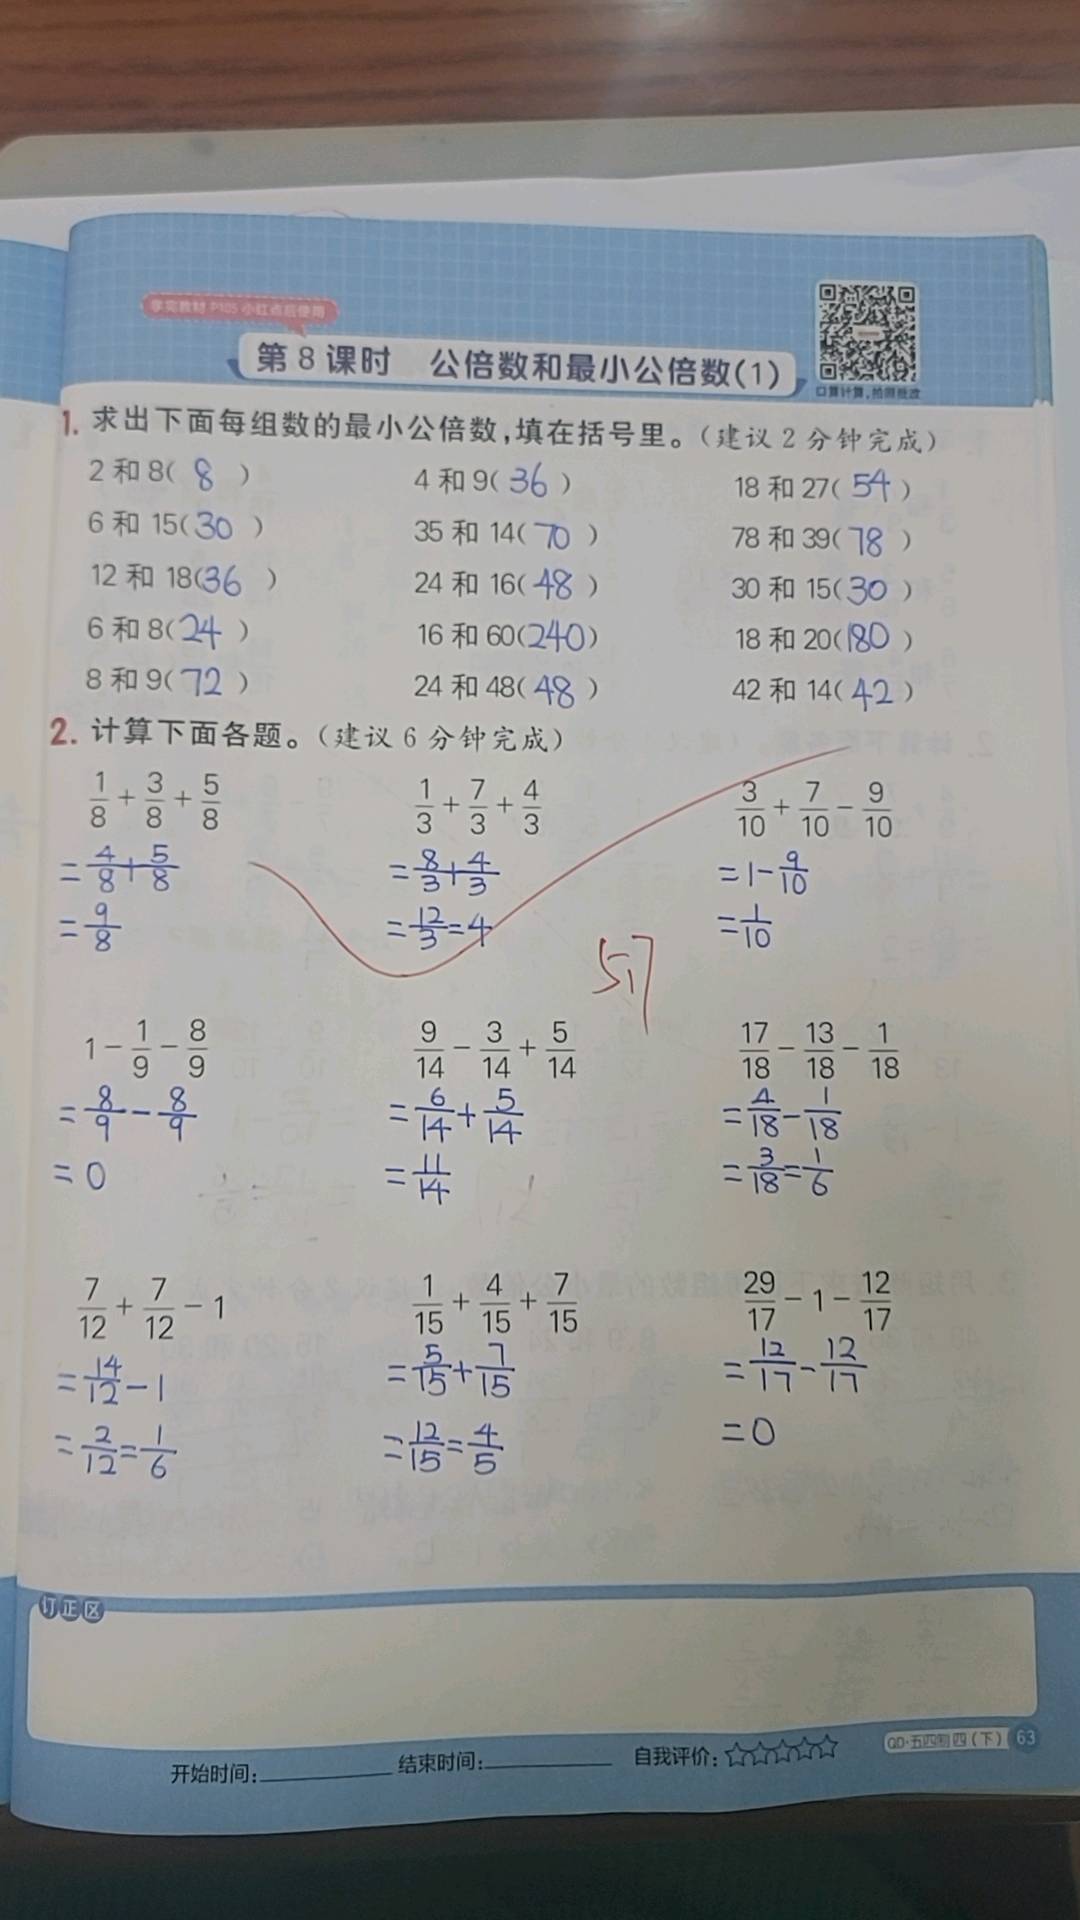 学完教材 P105 小红点后使用
第 8 课时 公倍数和最小公倍数(1)
口算计算,拍照批改
1. 求出下面每组数的最小公倍数,填在括号里。(建议 2 分钟完成)
2 和 8( 8 ) 4 和 9( 36 ) 18 和 27( 54 )
6 和 15( 30 ) 35 和 14( 70 ) 78 和 39( 78 )
12 和 18( 36 ) 24 和 16( 48 ) 30 和 15( 30 )
6 和 8( 24 ) 16 和 60( 240 ) 18 和 20( 180 )
8 和 9( 72 ) 24 和 48( 48 ) 42 和 14( 42 )
2. 计算下面各题。(建议 6 分钟完成)
1/8 + 3/8 + 5/8 1/3 + 7/3 + 4/3 3/10 + 7/10 - 9/10
= 4/8 + 5/8 = 8/3 + 4/3 = 1 - 9/10
= 9/8 = 12/3 = 4 = 1/10
1 - 1/9 - 8/9 9/14 - 3/14 + 5/14 17/18 - 13/18 - 1/18
= 8/9 - 8/9 = 6/14 + 5/14 = 4/18 - 1/18
= 0 = 11/14 = 3/18 = 1/6
7/12 + 7/12 - 1 1/15 + 4/15 + 7/15 29/17 - 1 - 12/17
= 14/12 - 1 = 5/15 + 7/15 = 12/17 - 12/17
= 2/12 = 1/6 = 12/15 = 4/5 = 0
订正区
开始时间: 结束时间: 自我评价:☆☆☆☆☆ QD·五四制 四(下) 63